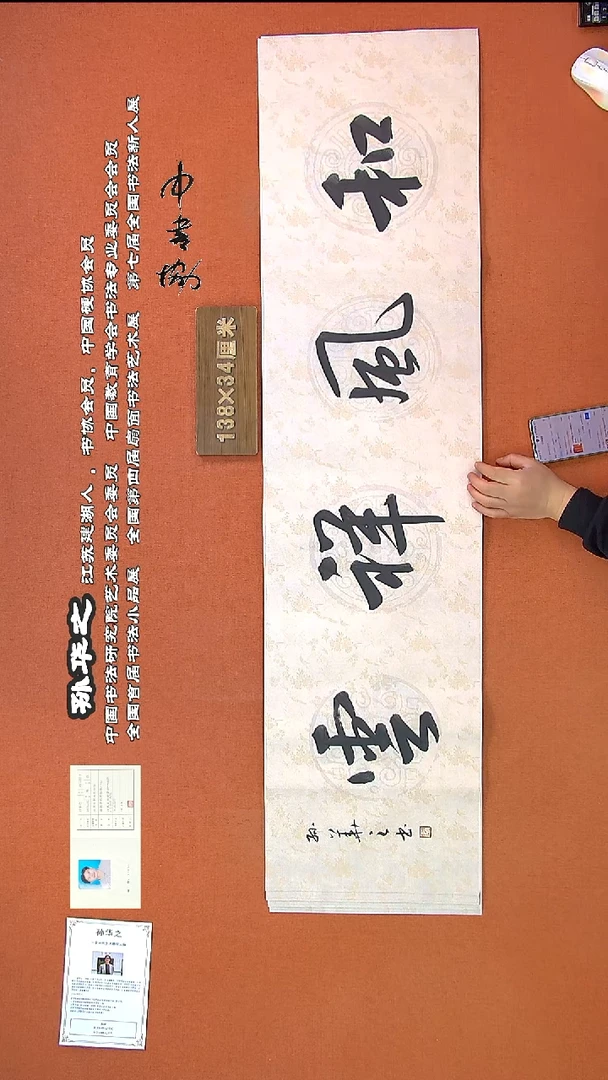 孙华之 江苏建湖人，书协会员，中国硬协会员
中国书法研究院艺术委员会委员 中国教育学会书法专业委员会会员
全国首届书法小品展 全国第四届扇面书法艺术展 第七届全国书法新人展
138×34厘米
和風祥雲
孙華之书